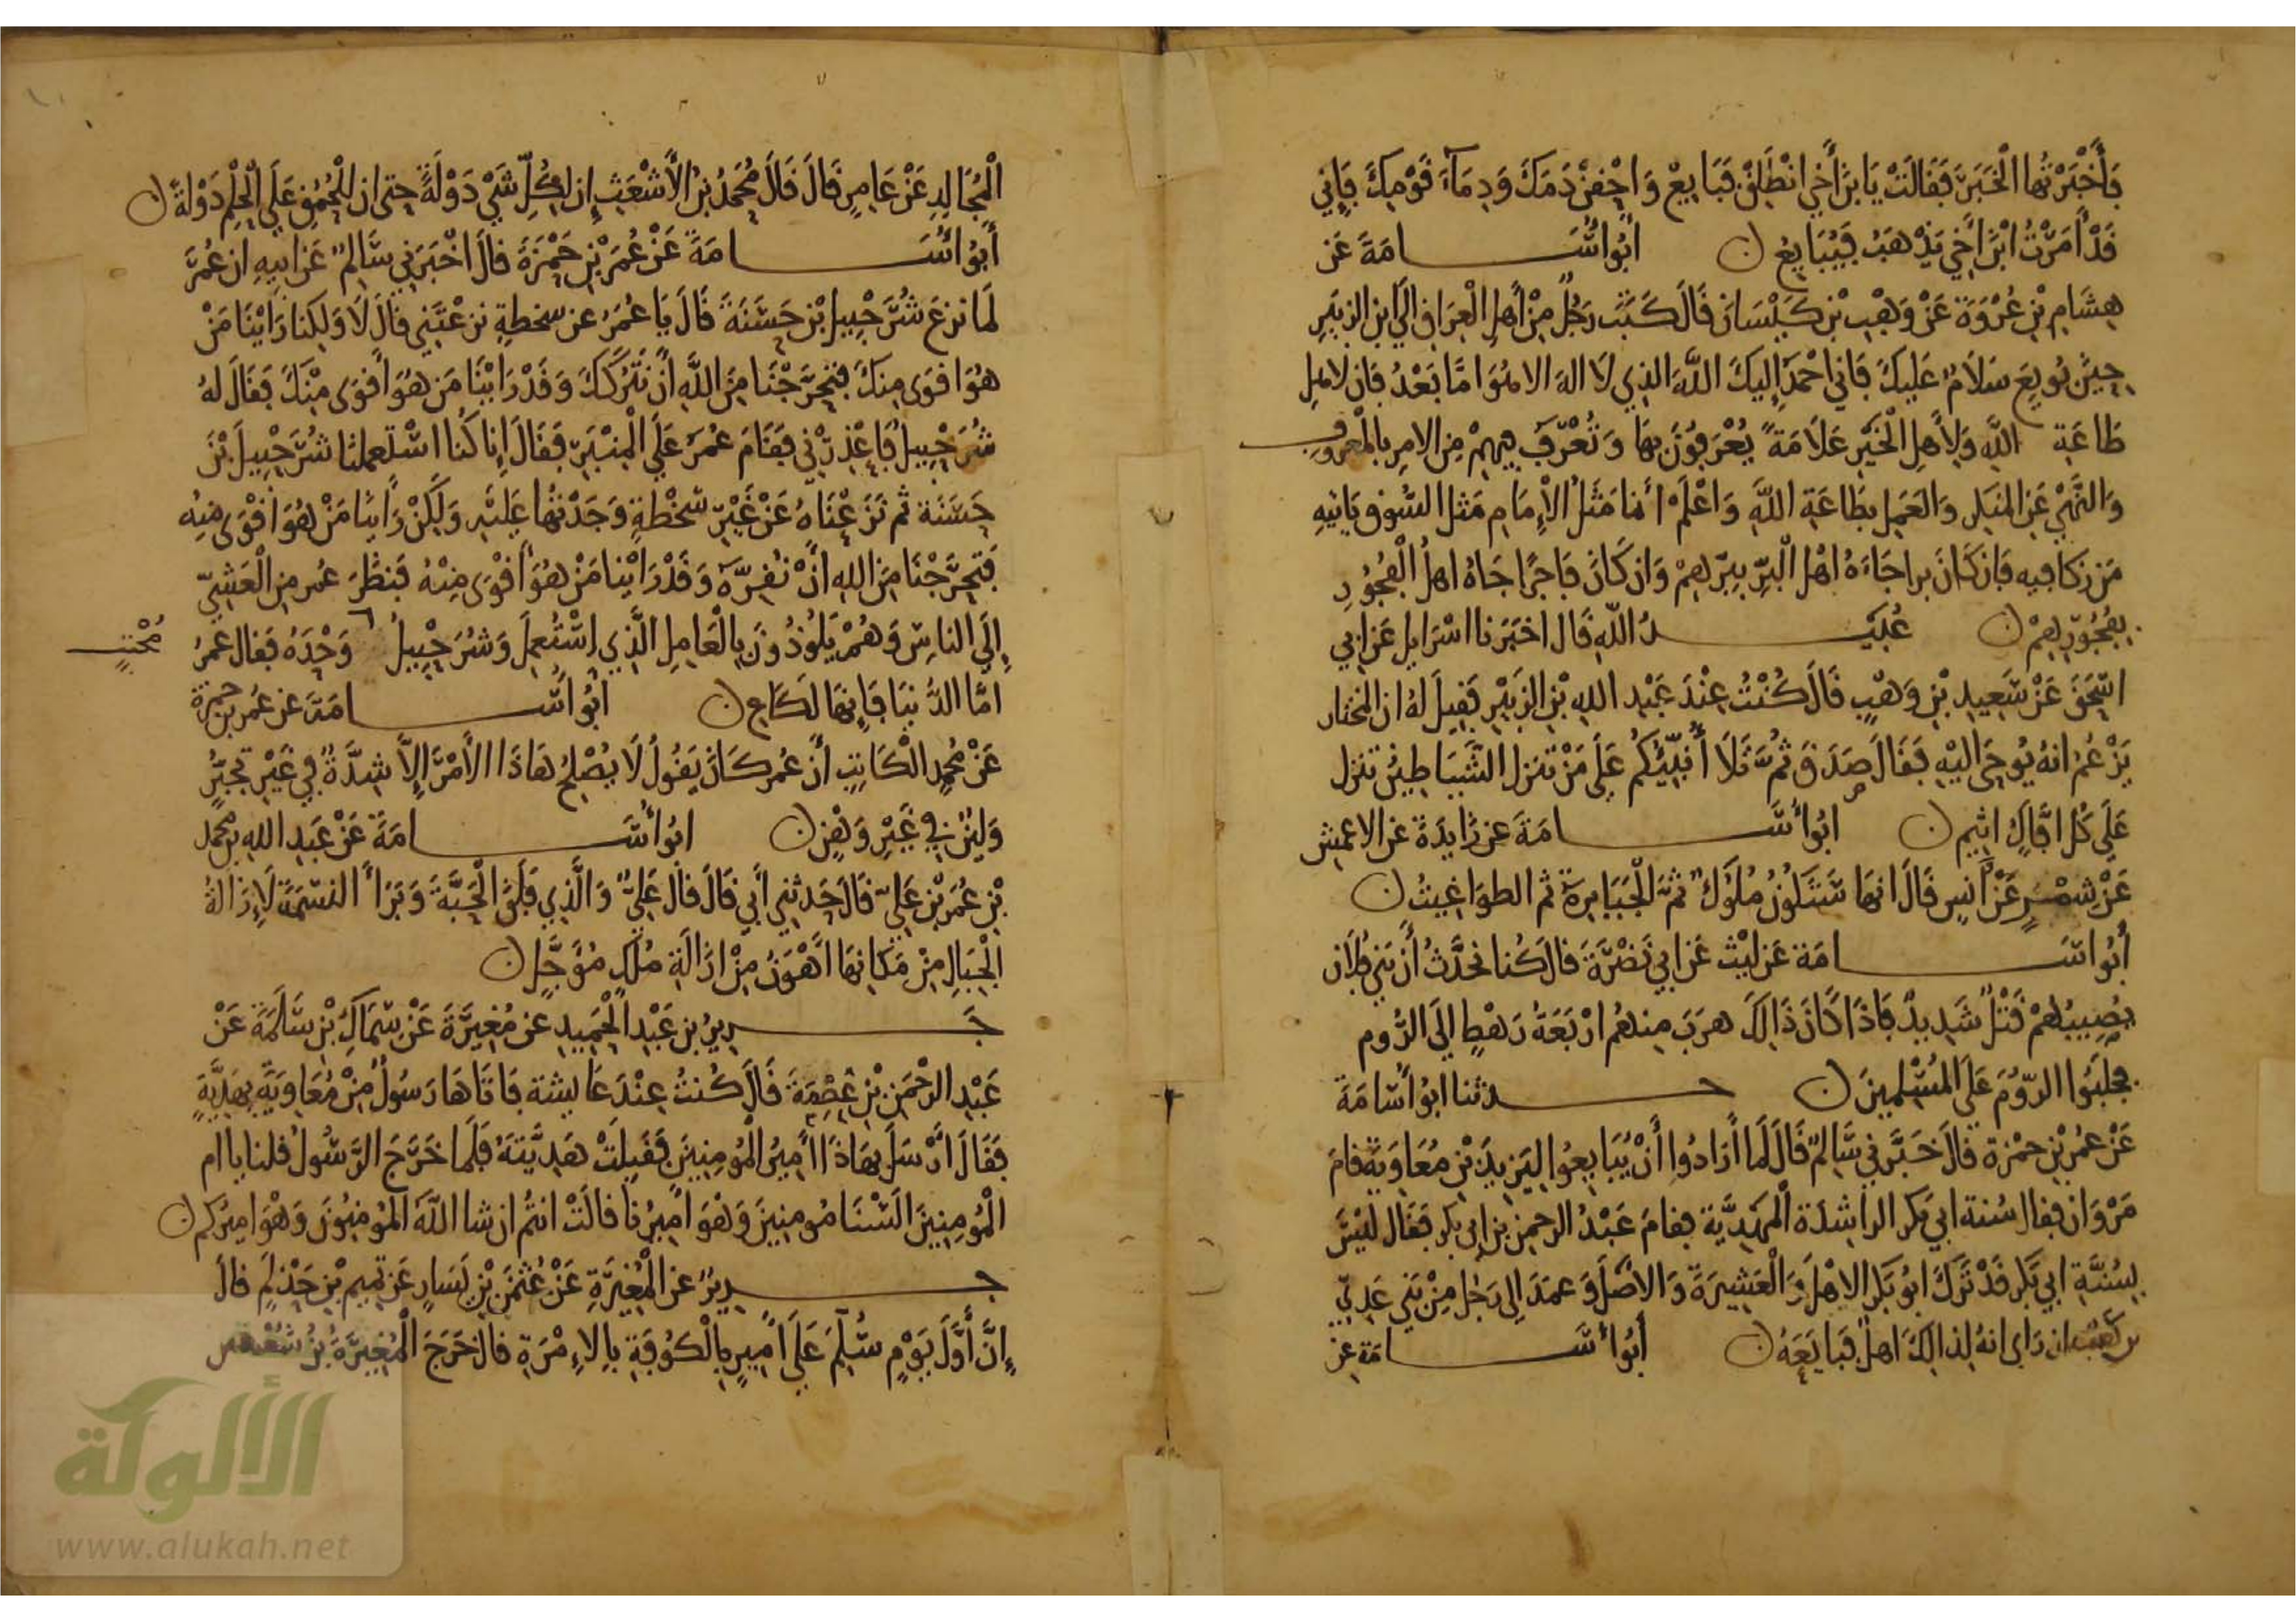 فَأَخْبَرْتُهَا الْخَبَرَ فَقَالَتْ يَا بْنَ أَخِي انْطَلِقْ فَبَايِعْ وَاحْقِنْ دَمَكَ وَدِمَآءَ قَوْمِكَ فَإِنِّي
قَدْ أَمَرْتُ ابْنَ أَخِي يَذْهَبُ فَيُبَايِعُ ن أَبُو أُسَامَةَ عَن
هِشَامِ بْنِ عُرْوَةَ عَنْ وَهْبِ بْنِ كَيْسَانَ قَالَ كَتَبَ رَجُلٌ مِنْ أَهْلِ الْعِرَاقِ إِلَى ابْنِ الزبَيرِ
حِينَ بُويِعَ سَلَامٌ عَلَيكَ فَإني أحْمَدُ إِلَيكَ اللَّهَ الذِي لَا اله الا هُوَ امَّا بَعْدُ فَان لاهلِ
طَاعَةِ اللَّهِ وَلأَهلِ الْخَيْرِ عَلَامَةً يُعْرَفُونَ بِهَا وَتُعْرَفُ فِيهِمْ مِن الامرِ بالمَعرُوفِ
وَالنَّهْيِ عَنِ المُنكَرِ وَالعَمَلِ بِطَاعَةِ اللَّهِ وَاعْلَمْ أنمَا مَثَلُ الْإِمَامِ مَثَل السُّوقِ يَاتِيهِ
مَن زكا فِيه فَإن كَانَ برا جَاءَهُ أهْلُ الْبِرِّ بِبِرِّهِمْ وَان كَانَ فَاجرًا جَاهُ اهلُ الْفُجُورِ
بِفُجُورِهِمْ ن عُبَيْدُ اللَّهِ قَالَ اخبَرَنا اسْرَايل عَن ابي
اسْحَقَ عَنْ سَعِيدِ بْنِ وَهْبٍ قَالَ كُنْتُ عِنْدَ عَبْدِ اللهِ بْنِ الزبَيْرِ فَقِيلَ لهُ ان المختار
يَزْعُمُ انهُ يُوحَى اليْهِ فَقَالَ صَدَقَ ثُمَّ تَلَا أُنَبِّيُكُم عَلَى مَنْ تنزل الشَّيَاطِينُ تنزل
عَلَى كُل افَّاكٍ اثِيم ن ابُو أُسَامَةَ عَن زَايدَةَ عَن الاعمشِ
عَنْ شمْرٍ عَنْ أَنَسٍ قَالَ انهَا سَتَكُونُ مُلُوكٌ ثمَّ الْجَبَابِرةُ ثم الطوَاغِيتُ ن
أَبُو اسَامَة عَن ليْث عَن ابي نَضْرَةَ قالَ كُنا نحَدَّثُ أَنَّ بَنِي فُلَان
يُصِيبُهمْ قَتْلٌ شَدِيدٌ فَاذَا كَانَ ذَالِكَ هرَبَ مِنهُم ارْبَعَةُ رَهْطٍ إِلَى الرُّوم
فجلَبُوا الرُّومَ عَلَى المُسْلِمِينَ ن حدثنا ابُو اُسَامَةَ
عَنْ عمَر بْنِ حمْزة قالَ اخَبَرَنِي سَالِمٌ قَالَ لَما أَرَادُوا أَنْ يُبَايِعُوا لِيَزِيدَ بْنِ مُعَاوِيَةَ قامَ
مَرْوَان فقال سُنة ابي بكر الراشِدَة الْمَهْدِيَّة فقامَ عَبْدُ الرحمن بن ابي بكرٍ فَقَال ليْسَ
بِسُنَّةِ ابي بَكر قَدْ تَرَكَ ابُو بَكر الاهْلَ وَالْعَشِيرَةَ وَالاصْلَ وَعمَدَ الي رَجُلٍ مِنْ بَنِي عَدِيِّ
بن كعب ان رَاى انهُ لِذَالِكَ اهلٌ فَبَايَعَهُ ن أَبُو أُسَامَة عَن
الْمُجَالِدِ عَنْ عَامِرٍ قَالَ قَالَ مُحَمَّدُ بْنُ الأَشْعَثِ إن لِكُلِّ شَيْ دَوْلَةً حتى ان لِلْحُمْقِ عَلَى الْحِلْمِ دَوْلَةً ن
أَبُو أُسَامَةَ عَنْ عُمَرَ بْنِ حَمْزَةَ قالَ اخْبَرَنِي سَالِمٌ عَن ابيهِ ان عُمَرَ
لَما نزعَ شُرَحْبِيلَ بْنَ حَسَنَةَ قَالَ يَا عُمَرُ عن سخطةٍ نزعْتَنِي قالَ لَا وَلكِنا رَايْنَا مَنْ
هُوَ اقوَى مِنكَ فَتحرَّجْنَا مِنَ اللَّهِ أَنْ نَتْرُكَكَ وَقَدْ رَايْنَا مَن هُوَ أَقوَى مِنْكَ فَقَالَ لهُ
شُرَحْبِيلُ فَاعْذِرْنِي فَقَامَ عُمَرُ عَلَى الْمِنْبَرِ فَقَالَ إِنا كُنا اسْتَعملنا شُرَحْبِيلَ بْنَ
حَسَنَة ثم نَزَعْنَاهُ عَنْ غَيْرِ سَخْطةٍ وَجَدْتُهَا عَلَيْهِ وَلَكِنْ رَايْنَا مَنْ هُوَ اقْوَى مِنْهُ
فَتحَرَّجْنَا مِنَ اللهِ انْ نُقِرَّهُ وَقَدْ رَايْنَا مَنْ هُوَ أَقْوَى مِنْهُ فَنظَرَ عُمر مِن الْعَشِيِّ
إِلَى الناسِ وَهُمْ يَلُوذُونَ بِالْعَامِلِ الَّذِي اسْتُعْمِلَ وَشُرَحْبِيلُ وَحْدَهُ فَقال عمَرُ
مُحْتَبٍ
امَّا الدُّنيَا فَإِنهَا لَكَاعِ ن أَبُو أُسَامَةَ عن عُمر بن حمزة
عَنْ مُحمدٍ الْكَاتِبِ أَنَّ عُمَر كَانَ يَقُولُ لَا يُصْلِحُ هَاذَا الأَمْرَ إِلَّا شِدَّةٌ فِي غَيْرِ تجَبُّرٍ
وَلِينٌ فِي غَيْرِ وَهْنٍ ن ابُو أُسَامَةَ عَنْ عَبدِ اللهِ بن محمد
بْنِ عُمَرَ بْنِ عَلِيّ قَالَ حَدثني أَبِي قَالَ قال عَلِيٌّ وَالَّذِي فَلَقَ الْحَبَّةَ وَبَرَأَ النسَمَةَ لَإِزَالةُ
الْجِبَالِ مِنْ مَكانِهَا أَهْوَنُ مِنْ ازَالَةِ مُلْكٍ مُؤَجَّلٍ ن
جَرِيرُ بن عَبْدِ الْحَمِيدِ عن مُغِيرَةَ عَنْ سِمَاكِ بْنِ سَلَمَةَ عَنْ
عَبْدِ الرحْمَنِ بْنِ عِصْمَةَ قَالَ كُنتُ عِنْدَ عَايشة فَاتَاهَا رَسُولٌ مِنْ مُعَاوِيَةَ بِهَدِيَّةٍ
فَقَالَ أَرْسَلَ بِهَاذَا أَمِيرُ الْمُومِنِينَ فَقَبِلَتْ هَدِيَّتَهُ فَلَما خَرَجَ الرَّسُولُ قلنا يا ام
الْمُومِنِينَ السْنَا مُومِنِينَ وَهْوَ امِيرُنا قالَتْ انتُم ان شا اللَّهُ المُومِنُونَ وَهْوَ امِيرُكم ن
جرِيرٌ عن الْمُغِيرَةِ عَنْ عُثْمَن بْنِ يَسَارٍ عَن تمِيمِ بْنِ حَذلَمٍ قالَ
إِنَّ أَوَّلَ يَوْمٍ سُلِّمَ عَلَى أَمِيرٍ بِالْكُوفَةِ بِالإِمْرَةِ قال خَرَجَ الْمُغِيرَةُ بْنُ شُعْبَة
الألوكة
www.alukah.net